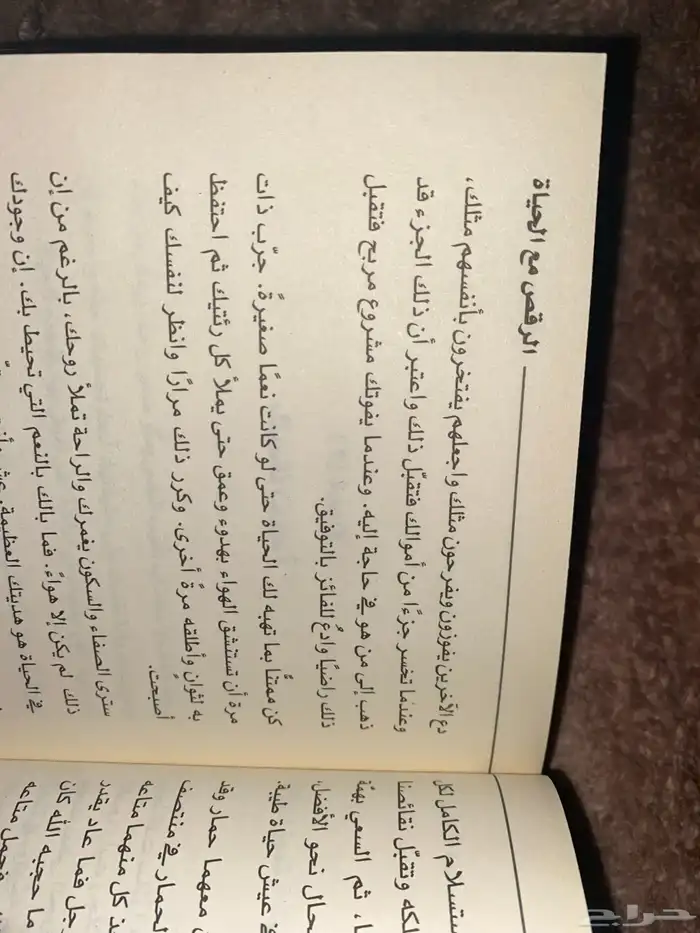 الكامل لكل
وتقبّل نقائصنا
ثم السعي بهمّة
نحو الأفضل،
في عيش حياة طيبة.
معهما حمار وقد
الحمار في منتصف
كل منهما متاعه
فما عاد يقدر
ما حجبه الله كان
فحمل متاعه
الرقص مع الحياة
دع الآخرين يفوزون ويفرحون مثلك واجعلهم يفتخرون بأنفسهم مثلك،
وعندما تخسر جزءًا من أموالك فتقبّل ذلك واعتبر أن ذلك الجزء قد
ذهب إلى من هو في حاجة إليه. وعندما يفوتك مشروع مربح فتقبل
ذلك راضيًا وادعُ للفائز بالتوفيق.
كن ممتنًا بما تهبه لك الحياة حتى لو كانت نعمًا صغيرةً. جرّب ذات
مرة أن تستنشق الهواء بهدوء وعمق حتى يملأ كل رئتيك ثم احتفظ
به لثوانٍ وأطلقه مرةً أخرى. وكرر ذلك مرارًا وانظر لنفسك كيف
أصبحت.
سترى الصفاء والسكون يغمرك والراحة تملأ روحك، بالرغم من إن
ذلك لم يكن إلا هواءً. فما بالك بالنعم التي تحيط بك. إن وجودك
في الحياة هو هديتك العظيمة. عش
حراج